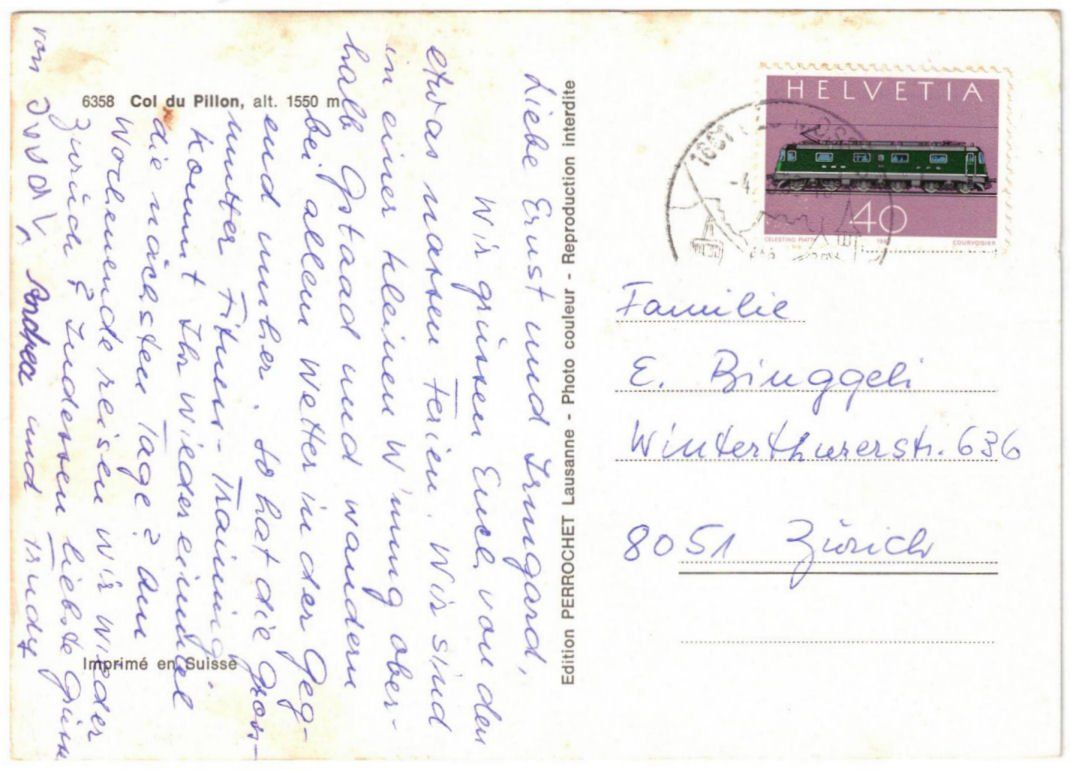 6358 Col du Pillon, alt. 1550 m
Liebe Ernst und Irmgard,
Wir grüssen Euch von den
etwas nassen Ferien. Wir sind
in einer kleinen W'nung ober-
halb Gstaad und wandern
bei allem Wetter in der Geg-
end umher. So hat die Gross-
mutter Fitness-Training.
Kommt Ihr wieder einmal
die nächsten Tage? Am
Wochenende reisen wir wieder
zurück. Indessen liebste Grüsse
von Andrea und Trudy
Imprimé en Suisse
Edition PERROCHET Lausanne - Photo couleur - Reproduction interdite
HELVETIA
40
CELESTINO PIATTI
COURVOISIER
Familie
E. Binggeli
Winterthurerstr. 636
8051 Zürich